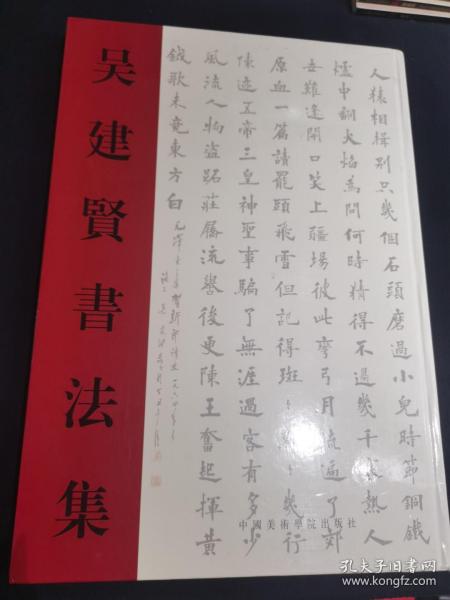 吴建賢書法集
人猿相揖别只幾個石頭磨過小兒時節銅鐵
爐中翻火焰為問何時猜得不過幾千寒熱人
世難逢開口笑上疆場彼此彎弓月流遍了郊
原血一篇讀罷頭飛雪但記得斑ミ幾行
陳迹五帝三皇神聖事騙了無涯過客有多少
風流人物盗跖莊屩流譽後更陳王奮起揮黄
鉞歌未竟東方白
中國美術學院出版社
孔夫子旧书网